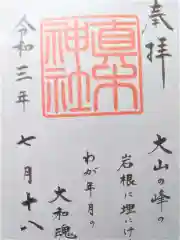 奉拝
大山の峰の
岩根に埋にけ
わが年月の
大和魂
真木神社
令和三年
七月十八